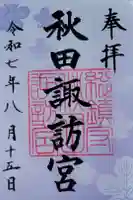 奉拝
秋田諏訪宮
令和七年八月十五日